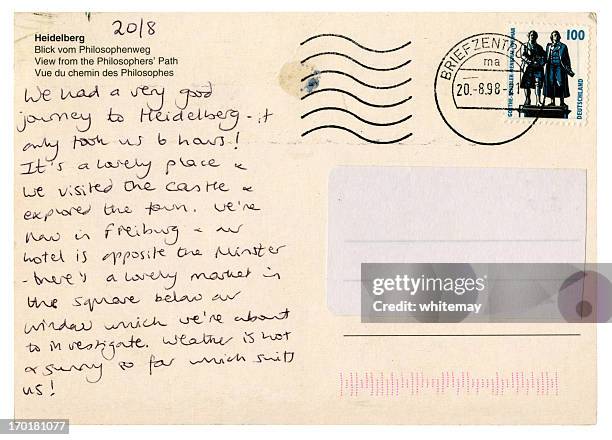 20/8
Heidelberg
Blick vom Philosophenweg
View from the Philosophers' Path
Vue du chemin des Philosophes
We had a very good
journey to Heidelberg - it
only took us 6 hours!
It's a lovely place &
we visited the castle &
explored the town. We're
now in Freiburg & our
hotel is opposite the Minster
- there's a lovely market in
the square below our
window which we're about
to investigate. Weather is hot
& sunny so far which suits
us!
BRIEFZENTRUM
ma
20.-8.98-21
100
GOETHE-SCHILLER-DENKMAL WEIMAR
DEUTSCHLAND
gettyimages
Credit: whitemay
170181077